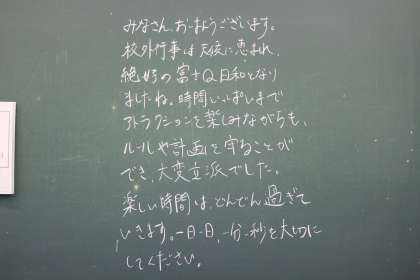 みなさん、おはようございます。
校外行事は天候に恵まれ、
絶好の富士Q日和となり
ましたね。時間いっぱいまで
アトラクションを楽しみながらも、
ルールや計画を守ることが
でき、大変立派でした。
楽しい時間は、どんどん過ぎて
いきます。一日一日、一分一秒を大切に
してください。